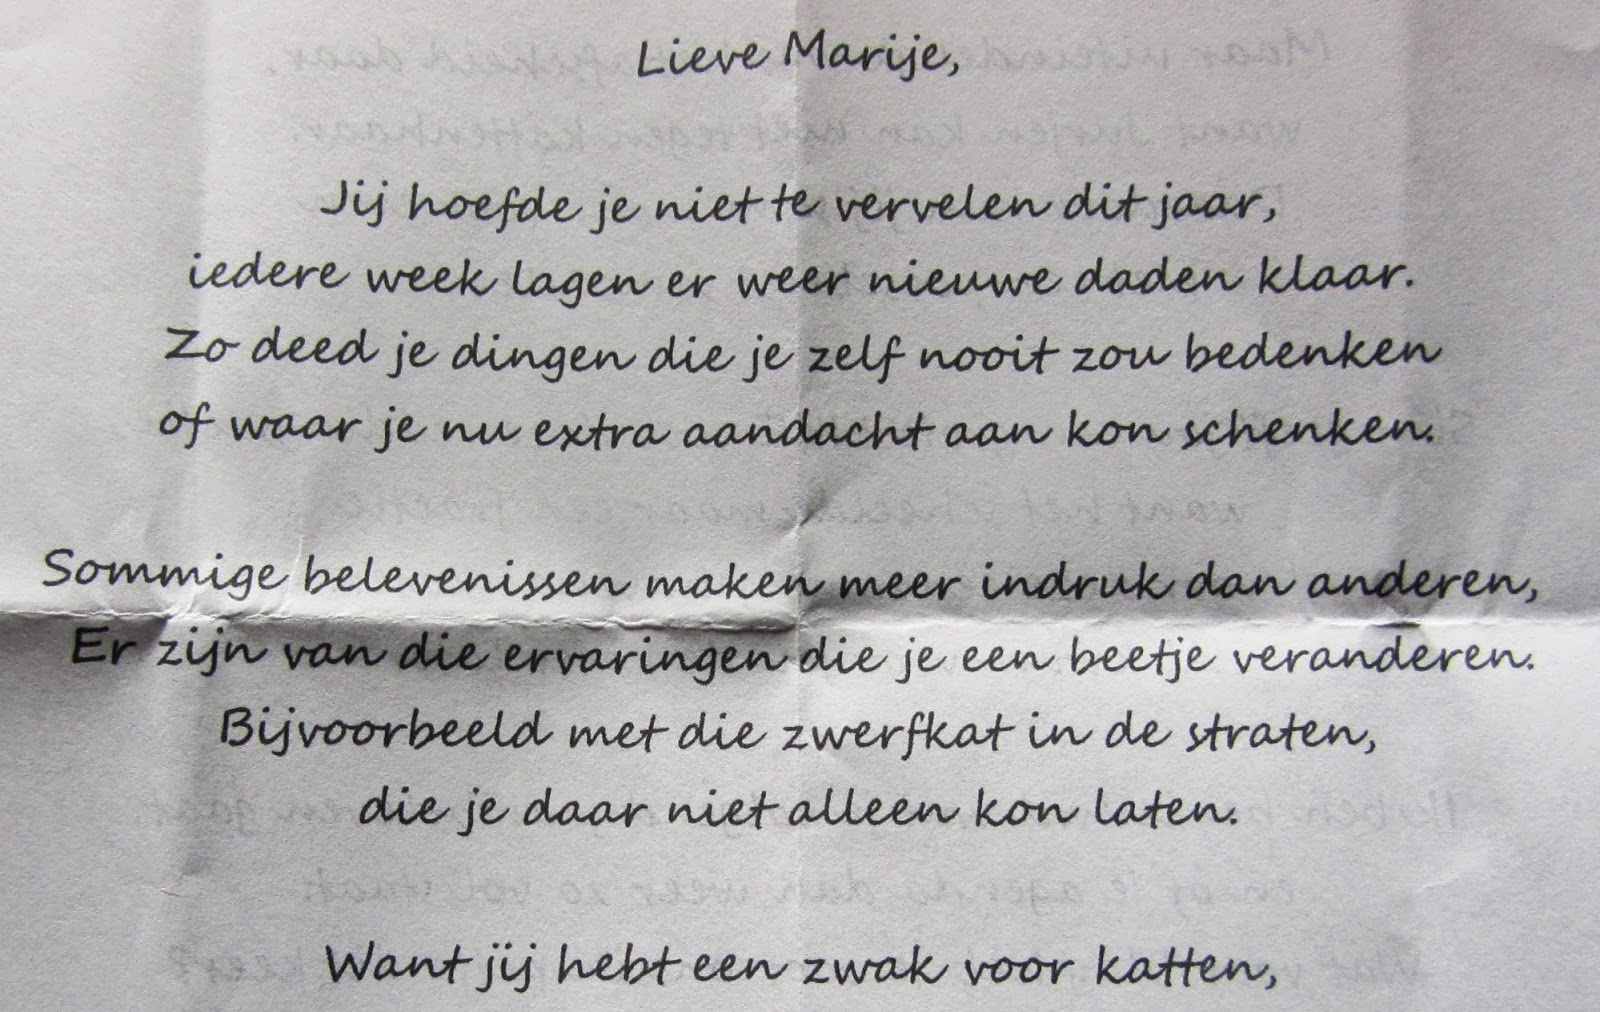 Lieve Marije,
Jij hoefde je niet te vervelen dit jaar,
iedere week lagen er weer nieuwe daden klaar.
Zo deed je dingen die je zelf nooit zou bedenken
of waar je nu extra aandacht aan kon schenken.
Sommige belevenissen maken meer indruk dan anderen,
Er zijn van die ervaringen die je een beetje veranderen.
Bijvoorbeeld met die zwerfkat in de straten,
die je daar niet alleen kon laten.
Want jij hebt een zwak voor katten,